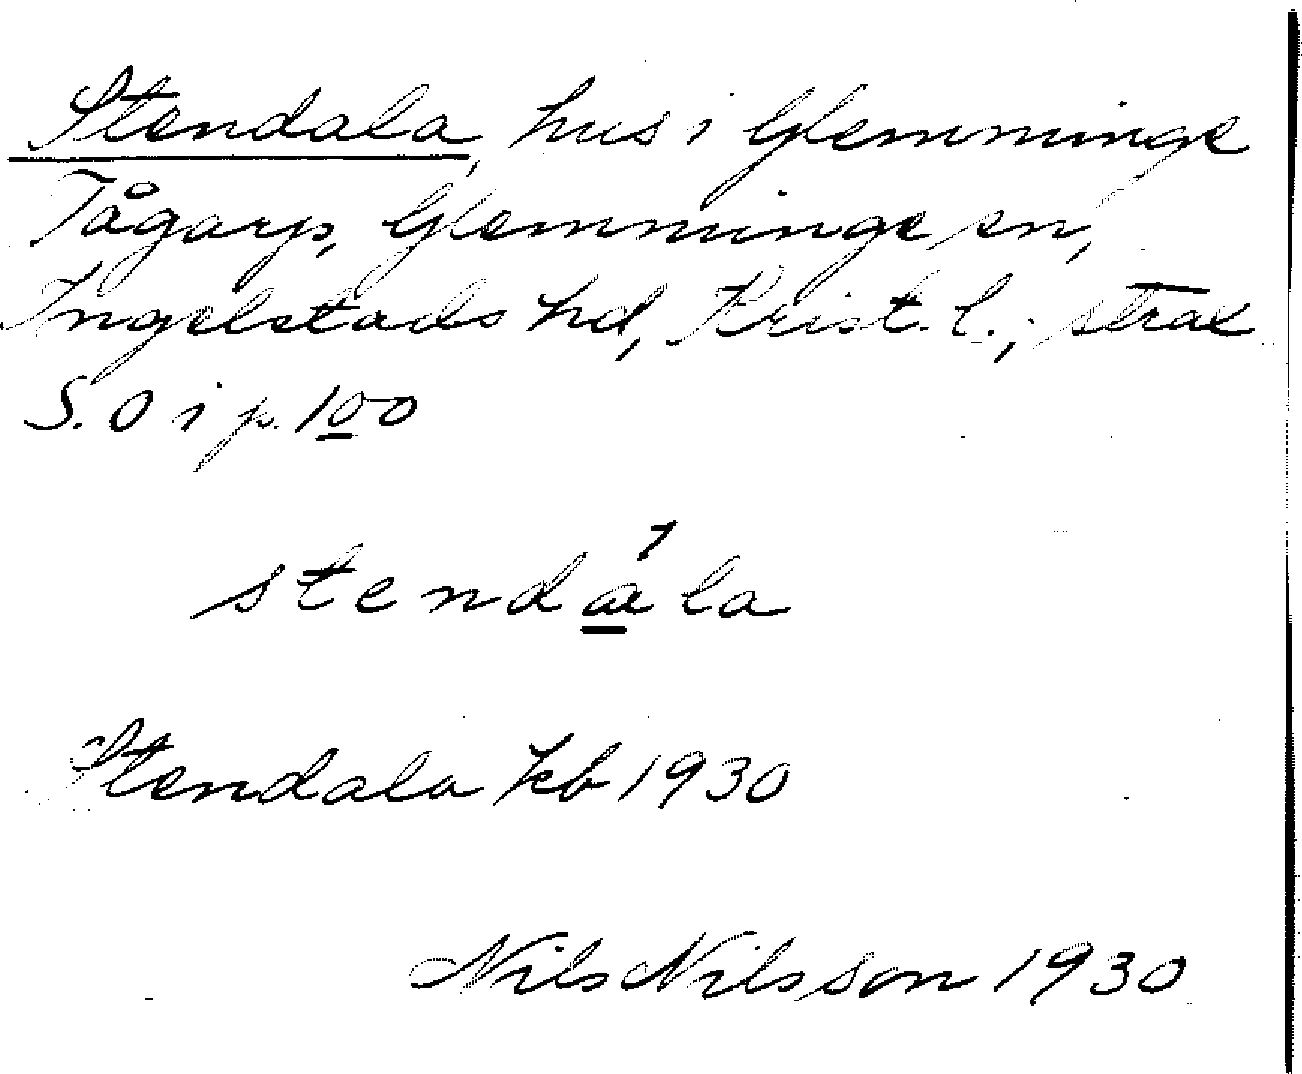 Stendala, hus i Glemminge
Tågarp, Glemminge sn,
Ingelstads hd, Krist. l.; strax
S. O i p. 100
stendala
Stendala Kb 1930
Nils Nilsson 1930